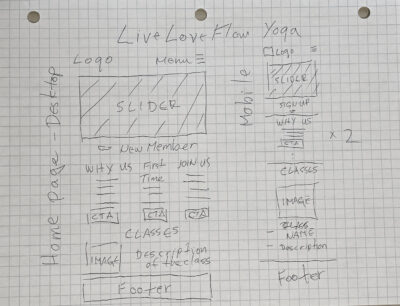 LiveLoveFlow Yoga
Home Page - Desktop
Logo Menu
SLIDER
New Member
WHY US First Time JOIN US
CTA CTA CTA
CLASSES
IMAGE Description of the class
Footer
Mobile
Logo
SLIDER
SIGN UP
WHY US
CTA
x 2
CLASSES
IMAGE
CLASS
NAME
- Description
Footer